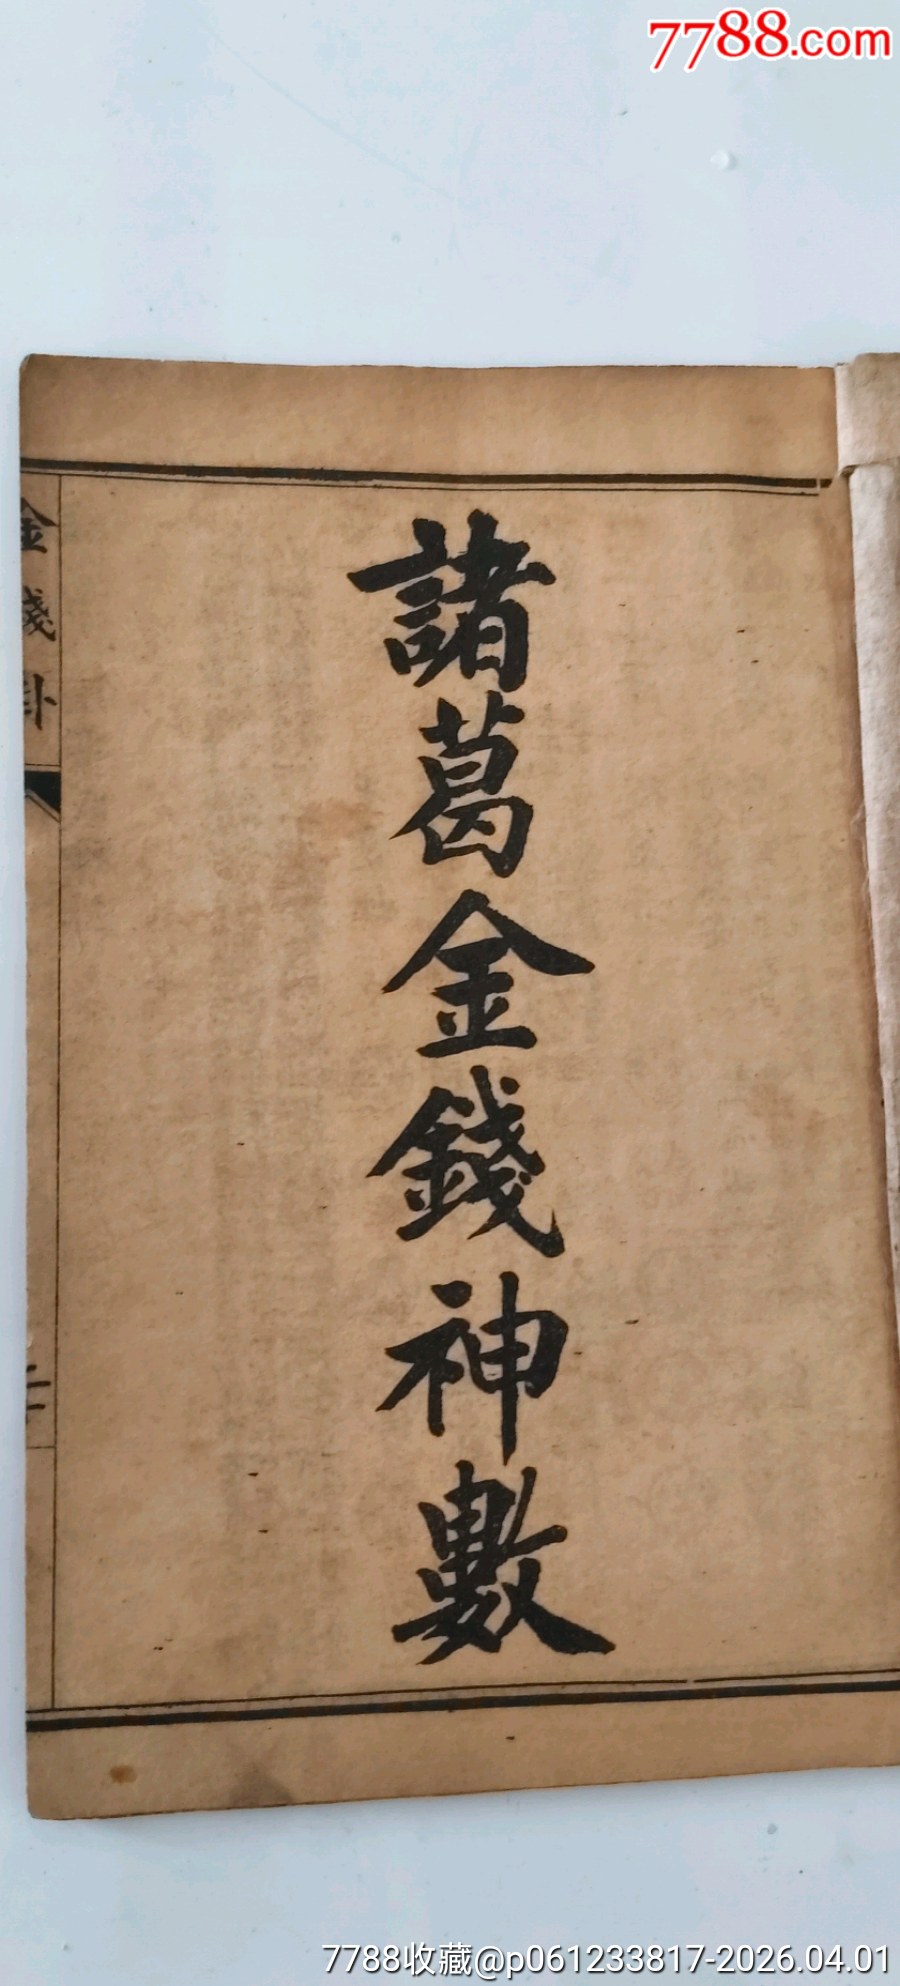 7788.com
諸葛金錢神數
金錢卦
二
7788收藏@p061233817-2026.04.01